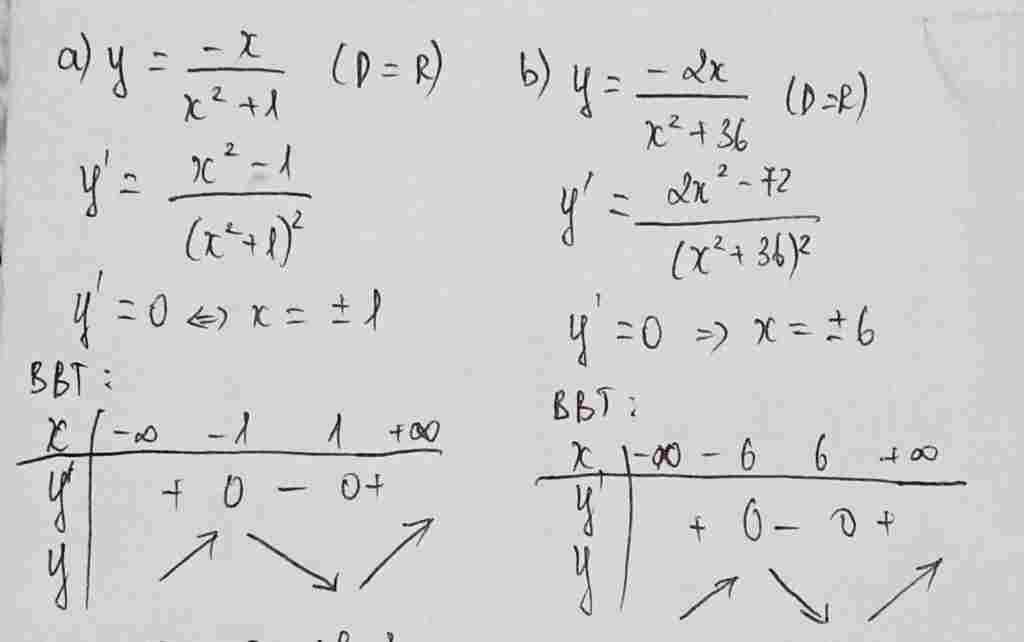 a) y = -x / (x² + 1) (D = R)
y' = (x² - 1) / (x² + 1)²
y' = 0 <=> x = ± 1
BBT:
x | -∞ -1 1 +∞
y' | + 0 - 0 +
y | ↗ ↘ ↗
b) y = -2x / (x² + 36) (D = R)
y' = (2x² - 72) / (x² + 36)²
y' = 0 => x = ± 6
BBT:
x | -∞ -6 6 +∞
y' | + 0 - 0 +
y | ↗ ↘ ↗